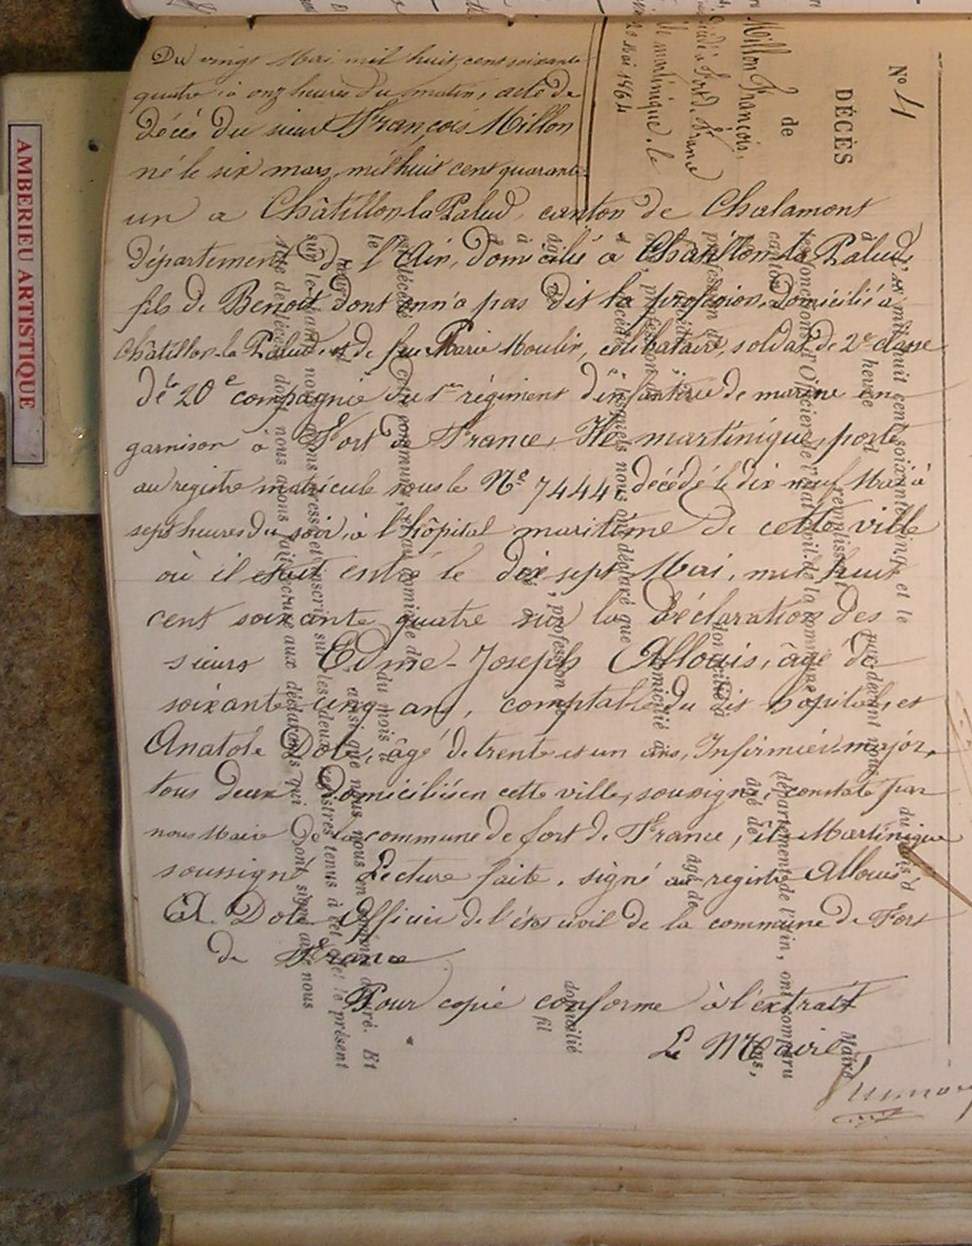 N° 4
DÉCÈS
de
Millon François,
décédé à Fort de France
île martinique, le
20 Mai 1864
Du vingt Mai mil huit cent soixante
quatre à onze heures du matin, acte de
décès du sieur François Millon
né le six mars mil huit cent quarante
un a Châtillon la Palud, canton de Chalamont
Département de l'Ain, domicilié a Chatillon la Palud,
fils de Benoit dont on n'a pas dit la profession, domicilié a
Châtillon la Palud, et de feu Marie Moulin, célibataire, soldat de 2e classe
de la 20e compagnie du 1er régiment d'infanterie de marine en
garnison à Fort de France, Ile martinique, porté
au registre matricule sous le N° 7444, décédé le dix neuf Mai à
sept heures du soir, à l'hôpital maritime de cette ville
où il était entré le dix sept Mai, mil huit
cent soixante quatre sur la Déclaration des
sieurs Edme-Joseph Allouis, âgé de
soixante cinq ans, comptable du dit hôpital, et
Anatole Dole, âgé de trente et un ans, Infirmier major,
tous deux Domiciliés en cette ville, soussignés constaté par
nous Maire de la commune de fort de France, île Martinique
soussigné Lecture faite, signé au registre Allouis
A. Dole Officier de l'état civil de la commune de Fort
de France
Pour copie conforme à l'extrait
Le Maire,
AMBERIEU ARTISTIQUE